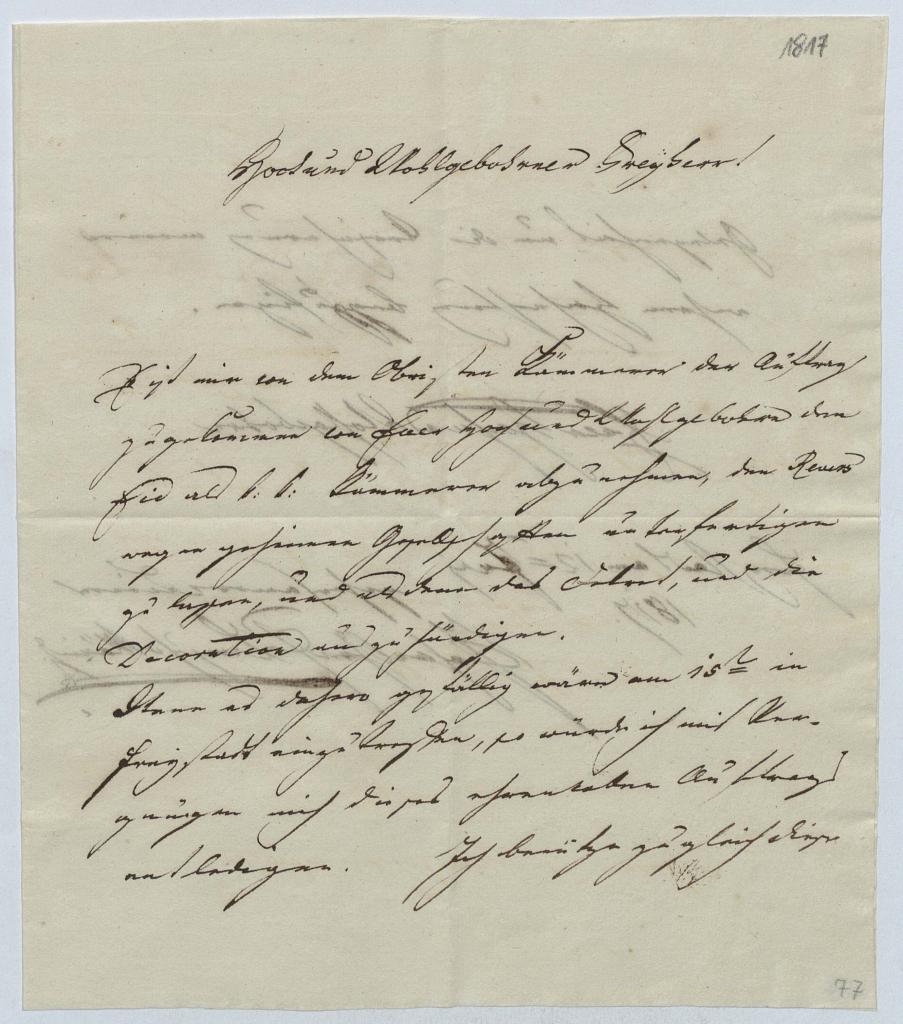 1817
Hoch und Wohlgebohrner Freyherr!
Es ist mir von dem Obristen Kämmerer der Auftrag
zugekommen von Euer Hoch und Wohlgebohrn den
Eid als k: k: Kämmerer abzunehmen, den Revers
wegen geheimen Gesellschaften unterfertigen
zu lassen, und alsdenn das Decret, und die
Decoration auszuhändigen.
Wenn es dahero gefällig wäre am 15t in
Freystadt einzutreffen, so würde ich mit Ver-
gnügen mich dieses ehrenvollen Auftrags
entledigen. Ich benütze zugleich diese
77